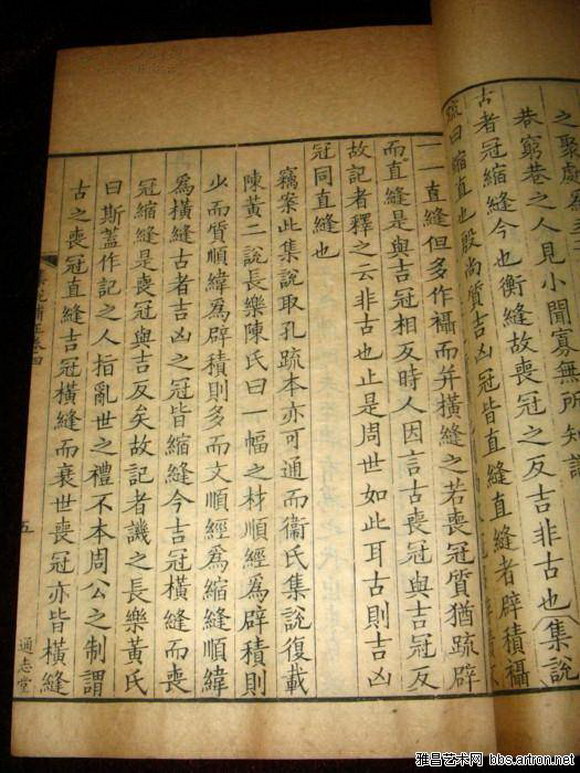 之聚
巷窮巷之人見小聞寡無所知識
古者冠縮縫今也衡縫故喪冠之反吉非古也(集說
疏曰縮直也殷尚質吉冠皆直縫直縫者辟積襵
一一直縫但多作襵而并橫縫之若喪冠質猶疏辟
而直縫是與吉冠相反時人因言古喪冠與吉冠反
故記者釋之云非古也止是周世如此耳古則吉凶
冠同直縫也
竊案此集說取孔疏本亦可通而衞氏集說復載
陳黃二說長樂陳氏曰一幅之材順經爲辟積則
少而質順緯爲辟積則多而文順經爲縮縫順緯
爲橫縫古者吉凶之冠皆縮縫今吉冠橫縫而喪
冠縮縫是喪冠與吉反矣故記者譏之長樂黃氏
曰斯蓋作記之人指亂世之禮不本周公之制謂
古之喪冠直縫吉冠橫縫而衰世喪冠亦皆橫縫
補正卷四 五 通志堂
雅昌艺术网 bbs.artron.net